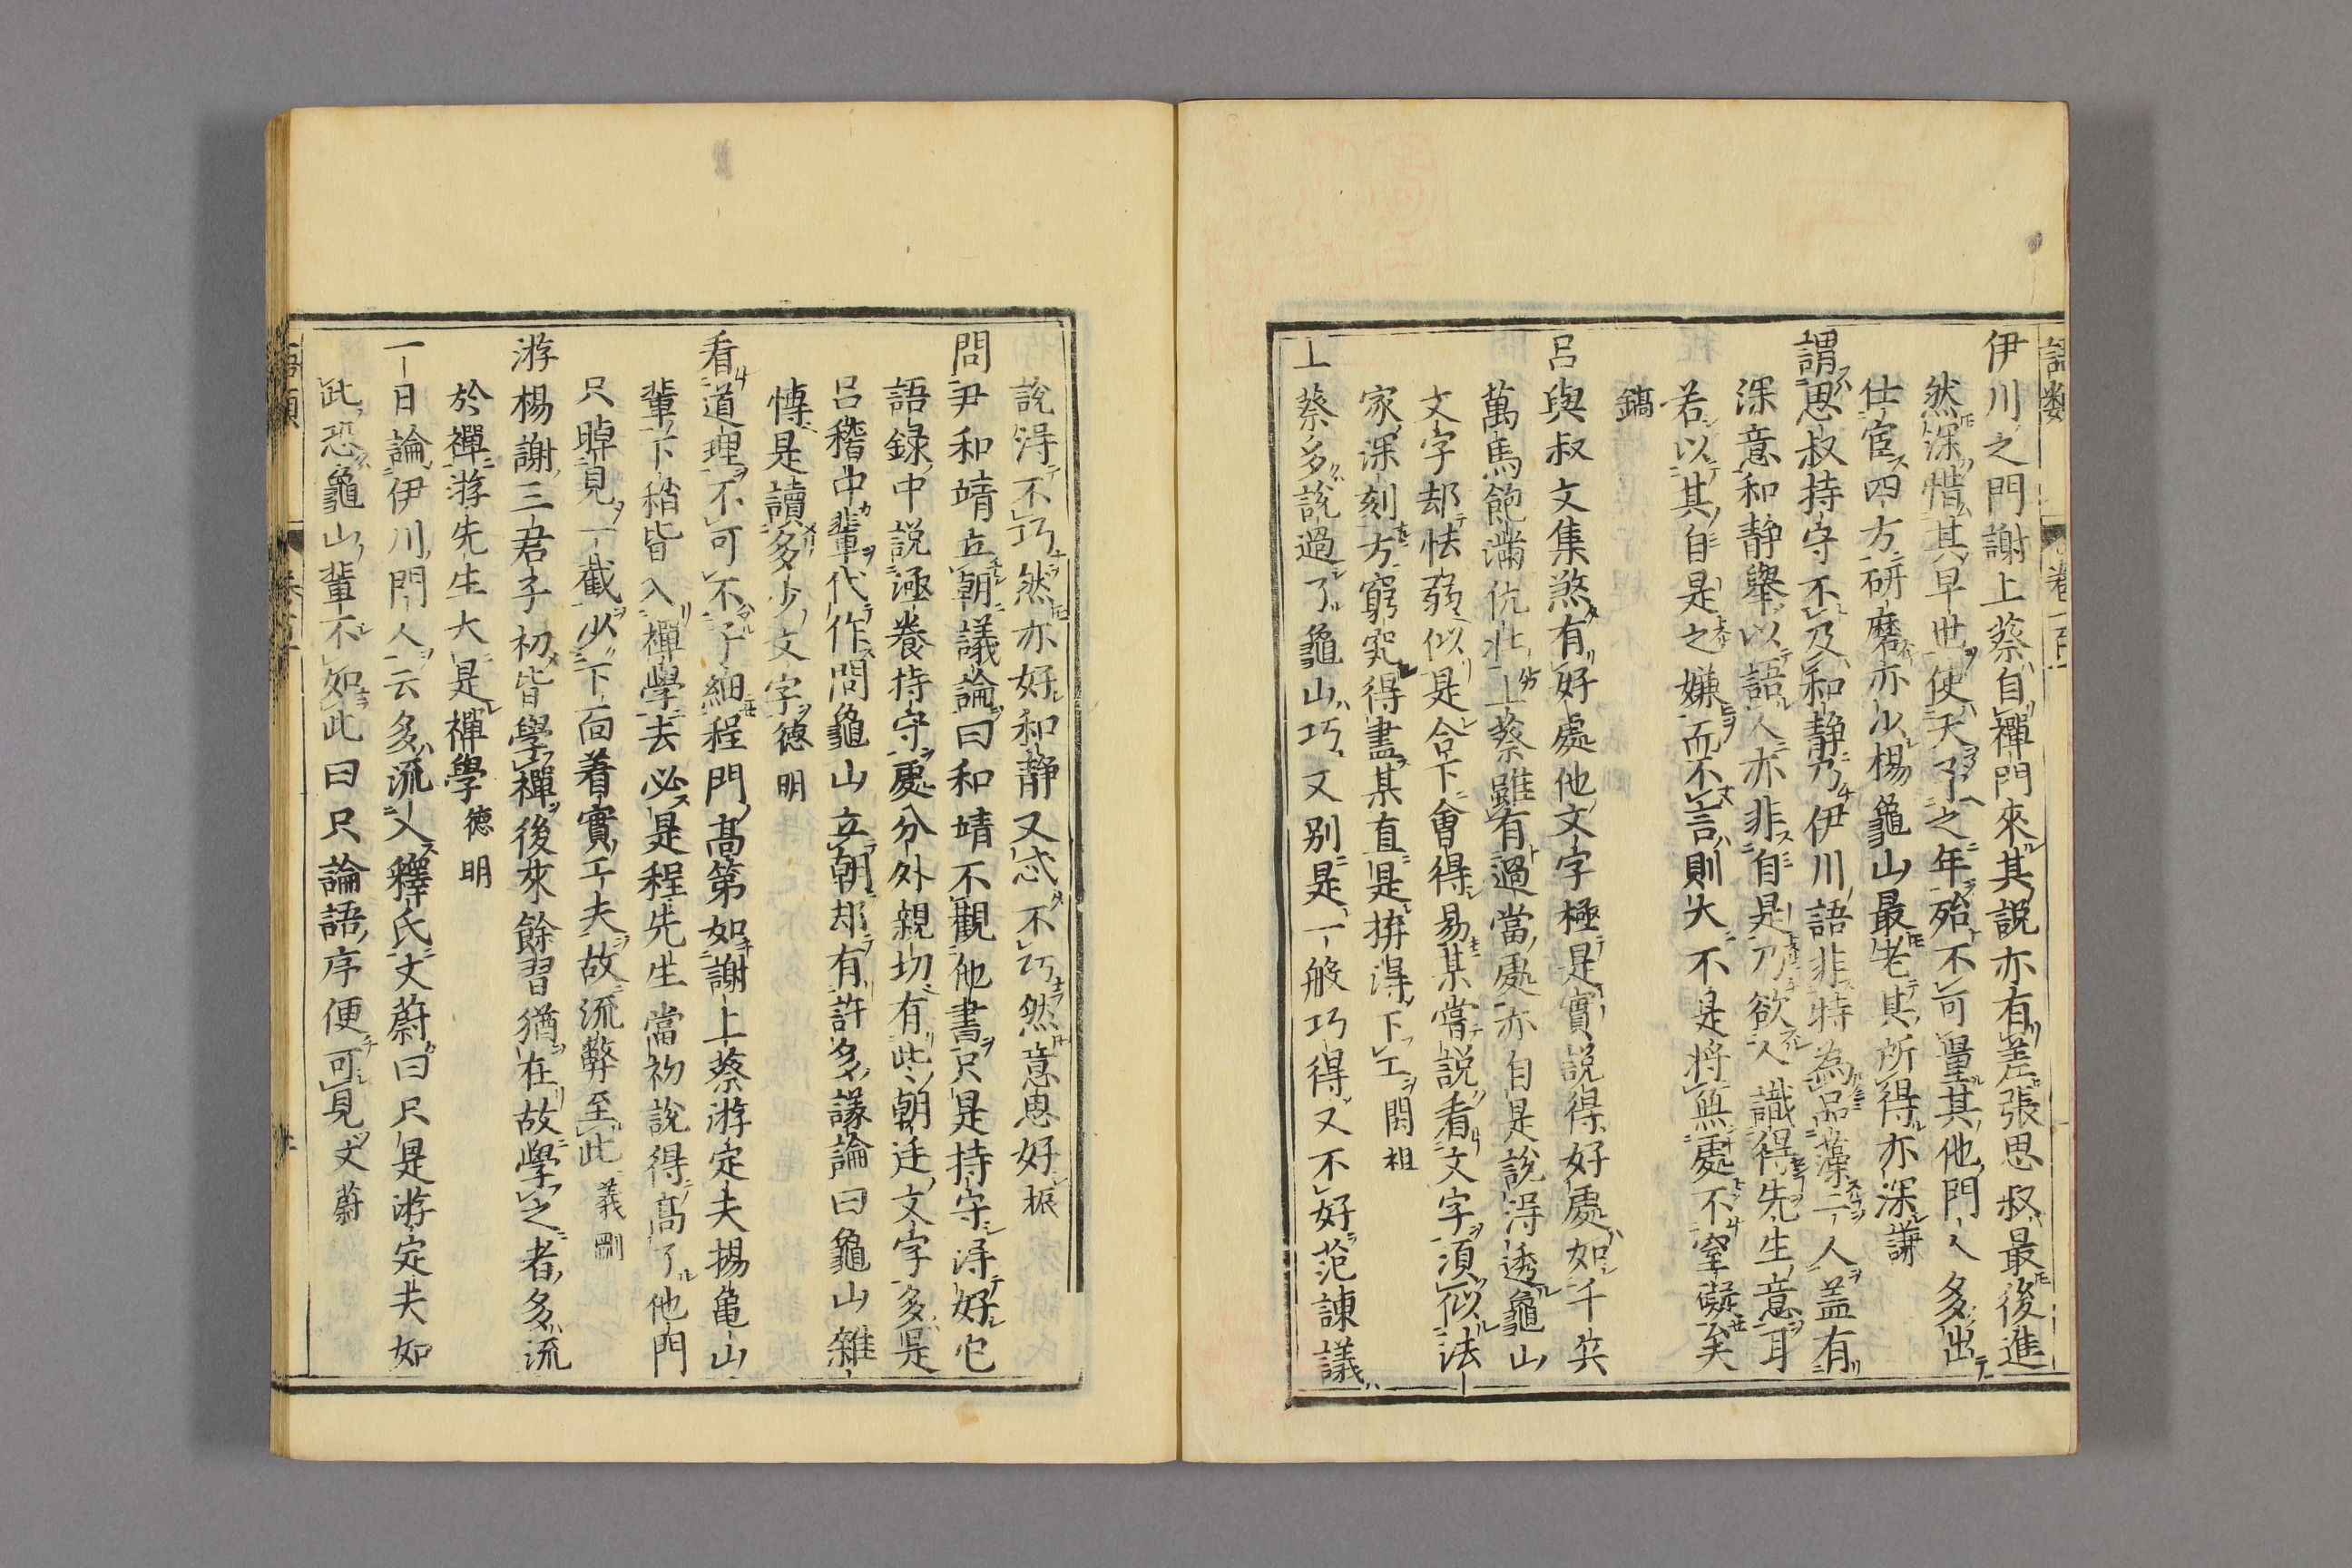 語類 卷一百一
伊川之門謝上蔡自禪門來其説亦有差張思叔最後進
然深惜其早世使天予之年殆不可量其他門人多出
仕宦四方研磨亦少楊龜山最老其所得亦深謙
謂思叔持守不及和静乃伊川語非特為品藻二人盖有
深意和静舉以語人亦非自是乃欲人識得先生意耳
若以其自是之嫌而不言則大不是将無處不窒礙矣
鎬
呂與叔文集煞有好處他文字極是實説得好處如千兵
萬馬飽滿伉壯上蔡雖有過當處亦自是說得透龜山
文字却怯弱似是合下會得易某嘗説看文字須似法
家深刻方窮究得盡某直是拚得下工閎祖
上蔡多說過了龜山巧又別是一般巧得又不好范諫議
說得不巧然亦好和静又忒不巧然意思好振
問尹和靖立朝議論曰和靖不觀他書只是持守得好它
語録中說涵養持守處分外親切有些朝廷文字多是
呂稽中輩代作問龜山立朝却有許多議論曰龜山雜
慱是讀多少文字德明
看道理不可不子細程門髙第如謝上蔡游定夫楊亀山
輩下稍皆入禪學去必是程先生當初說得髙了他門
只晫見一截少下面着實工夫故流弊至此義剛
游楊謝三君子初皆學禪後來餘習猶在故學之者多流
於禪游先生大是禪學德明
一日論伊川門人云多流入釋氏文蔚曰只是游定夫如
此恐龜山輩不如此曰只論語序便可見文蔚
語類